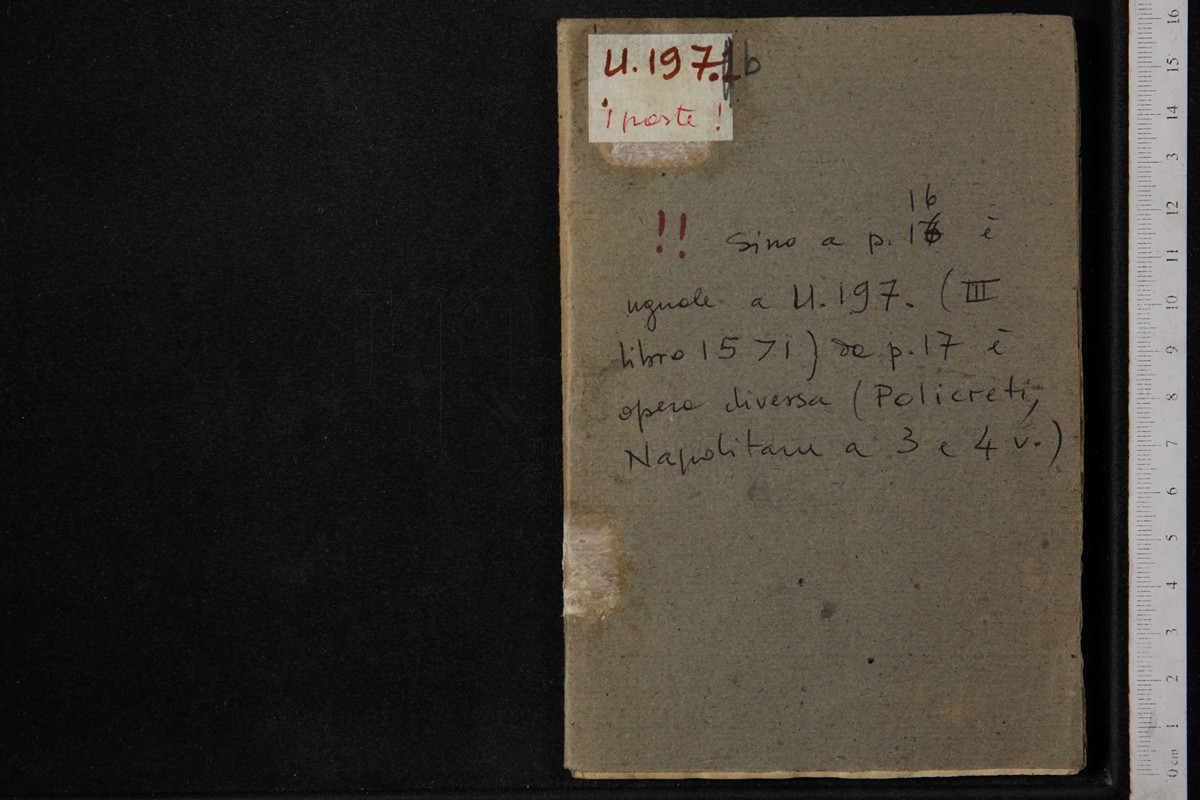 U.197.b
1 parte !
16
!! Sino a p. 16 è
uguale a U.197. (III
libro 1571) da p.17 è
opera diversa (Policreti,
Napolitane a 3 e 4 v.)
16
15
14
3
12
11
10
9
8
7
6
5
4
3
2
1
0 cm